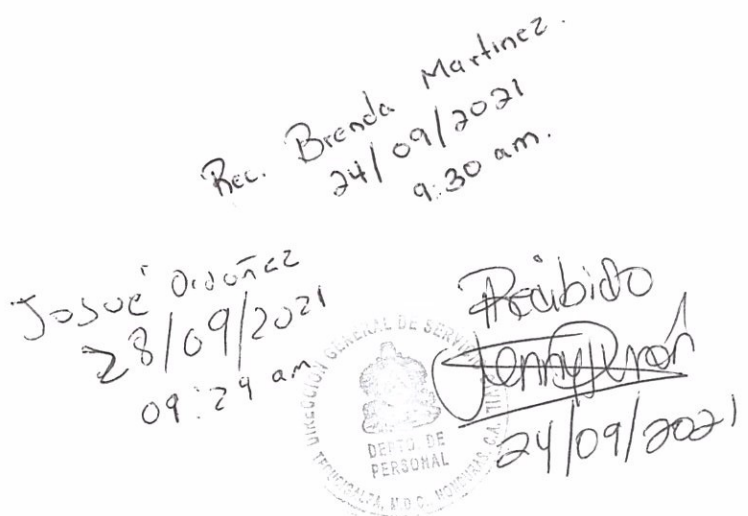 Rec. Brenda Martinez.
24/09/2021
9:30 am.
Josué Ordoñez
28/09/2021
09:29 am
Recibido
Jenny
24/09/2021
DIRECCION GENERAL DE
DEPTO. DE
PERSONAL
TEGUCIGALPA, M.D.C., HONDURAS, C.A.